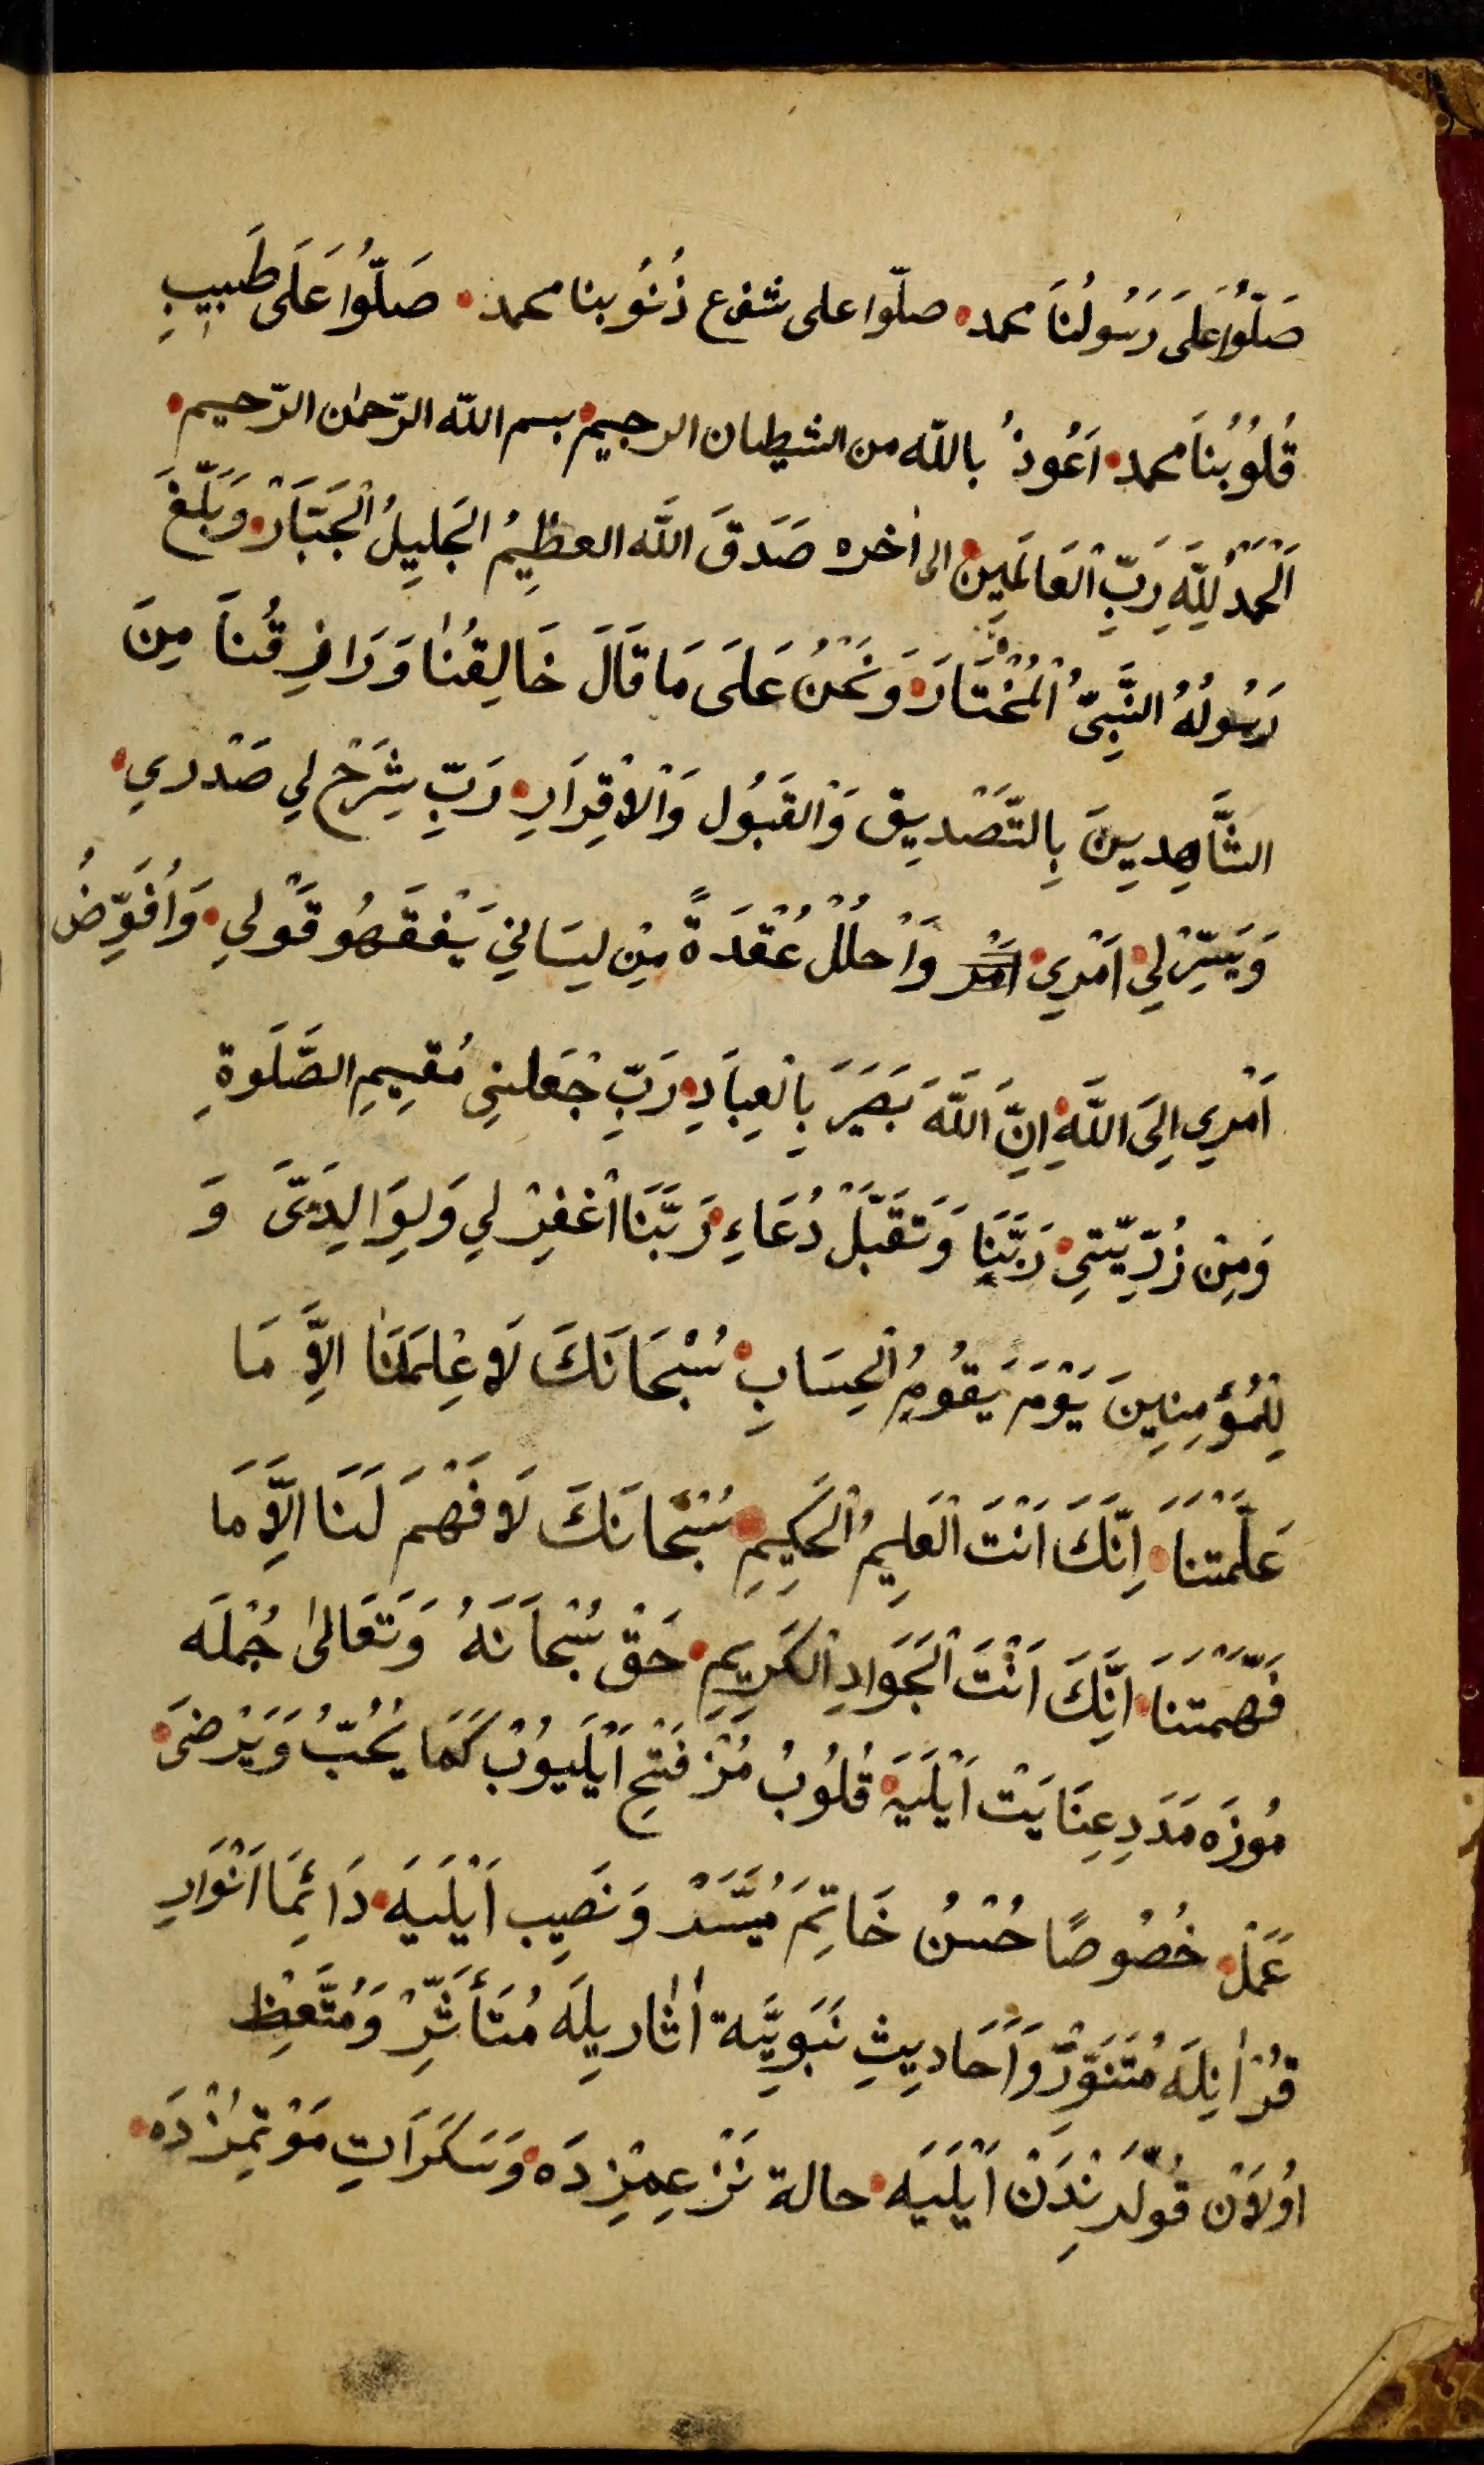 صَلُّوا عَلَى رَسُولُنَا محمد • صلّوا على شفع ذُنُوبنا محمد • صَلُّوا عَلَى طَبِيبِ
قُلُوُبُنَا محمد • اَعُوذُ بالله من الشيطان الرجيم • بسم الله الرّحمٰن الرّحيم •
اَلْحَمْدُ لِلّٰهِ رَبِّ الْعَالَمِين • الى اٰخره صَدَقَ اللّٰه العظِيمُ الجَلِيلُ الْجَبَّارْ • وَبَلَّغَ
رَسُولُهُ النَّبِىُّ الْمُخْتَارَ • وَنَحْنُ عَلَى مَا قَالَ خَالِقُنَا وَرَازِقُنَا مِنَ
الشَّاهِدِينَ بِالتَّصْدِيق وَالْقَبُول وَالْاِقْرَارِ • رَبِّ شِرَحْ لِي صَدْرِي •
وَيَسِّرْلِي اَمْرِي • وَاحْلُلْ عُقْدَةً مِنْ لِسَانِي يَفْقَهُو قَوْلِي • وَاُفَوِّضُ
اَمْرِي اِلَى اللّٰهِ • اِنَّ اللّٰهَ بَصَيَرَ بِالْعِبَادِ • رَبِّ جْعَلنِى مُقِيمِ الصَّلَوةِ
وَمِنْ ذُرِّيَّتِى • رَبَّنَا وَتَقَبَّلْ دُعَاءِ • رَبَّنَا اغْفِرْ لِي وَلِوَالِدَىَّ وَ
لِلْمُؤمِنِينَ يَوْمَ يَقُومُ الْحِسَابِ • سُبْحَانَكَ لَا عِلْمَلَنَا اِلَّا مَا
عَلَّمْتَنَا • اِنَّكَ اَنْتَ الْعَلِيمُ الْحَكِيمِ • سُبْحَانَكَ لَا فَهْمَ لَنَا اِلَّا مَا
فَهَّمْتَنَا • اِنَّكَ اَنْتَ الْجَوَادِ الْكَرِيمِ • حَقْ سُبْحَانَهُ وَتَعَالىٰ جُمْلَه
مُوزَه مَدَدِ عِنَايَتْ اَيْلَيَهْ • قُلُوبُ مُزْ فَتْحِ اَيْلَيوُبْ كَمَا يُحِبُّ وَيَرْضَى •
عَمَلْ • خُصُوصًا حُسْنُ خَاتِمَ مُيَسَّرْ وَنَصِيب اَيْلَيَه • دَائِمَا اَنْوَارِ
قُرْاٰنِلَه مُتَنَوِّرْ وَاَحَادِيثِ نَبَوِيَّه اٰثَارِيلَه مُتَأَثِّرْ وَمُتَّعِظِ
اوُلَانْ قُولّرنِدَنْ اَيْلَيَه • حالة نَزْعِمِزْدَه • وَسَكَرَاتِ مَوْتِمِزْدَه •